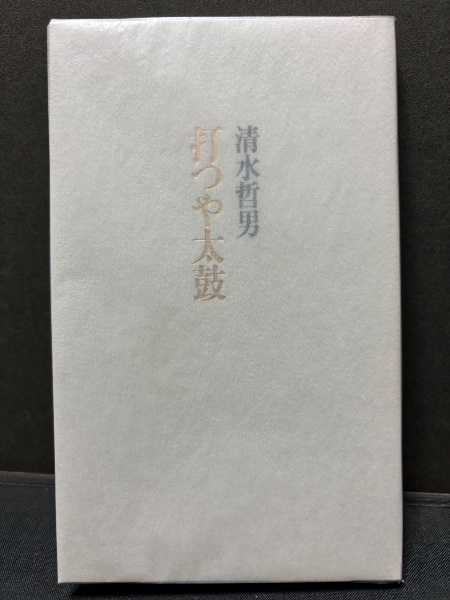 清水哲男
打つや太鼓